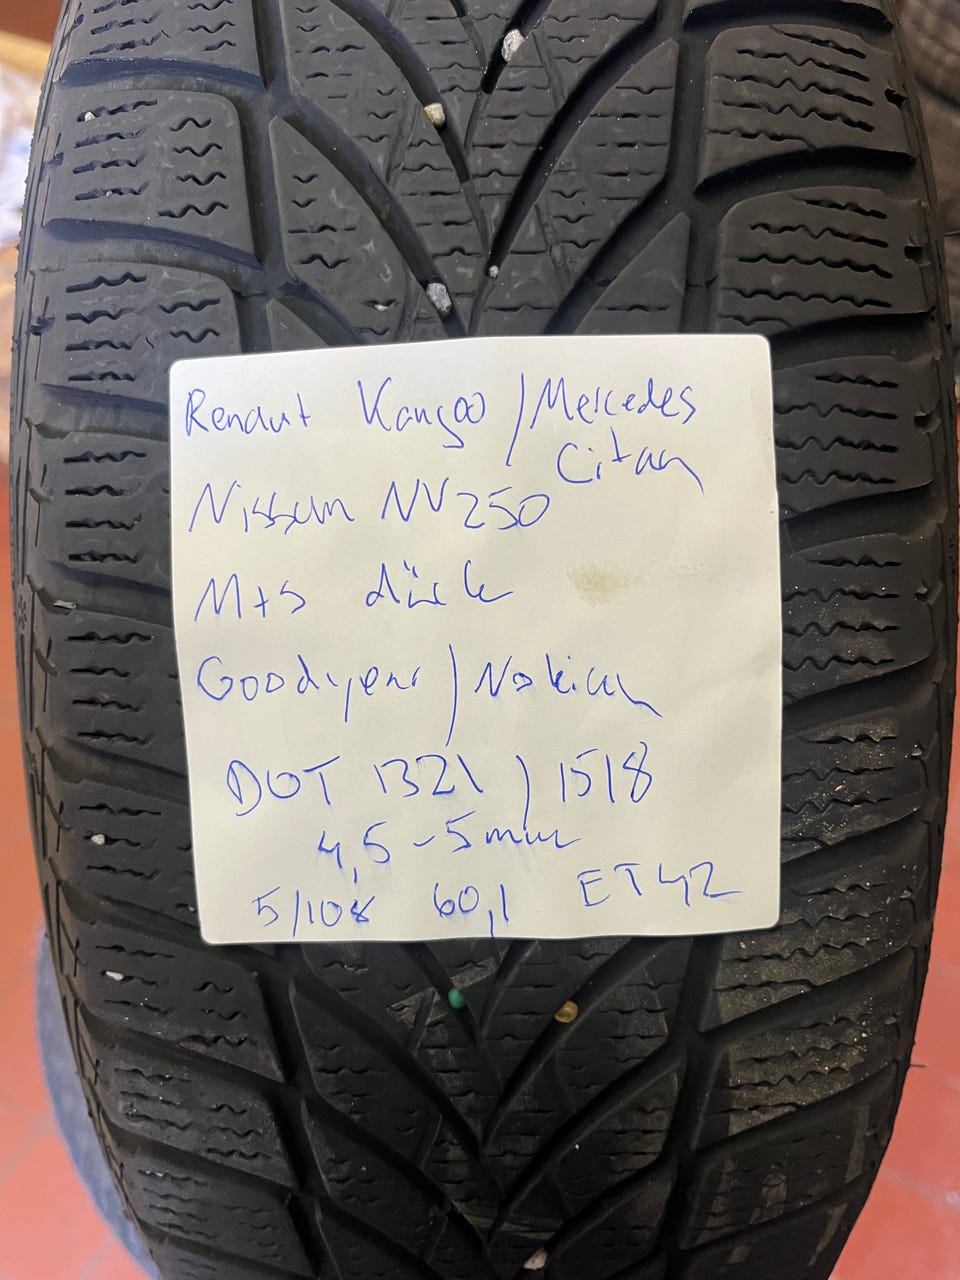 Renaut Kangoo / Mercedes
Citan
Nissan NV250
M+S
Goodyear / Nokian
DOT 1321 / 1518
4,5 - 5mm
5/108 60,1 ET42